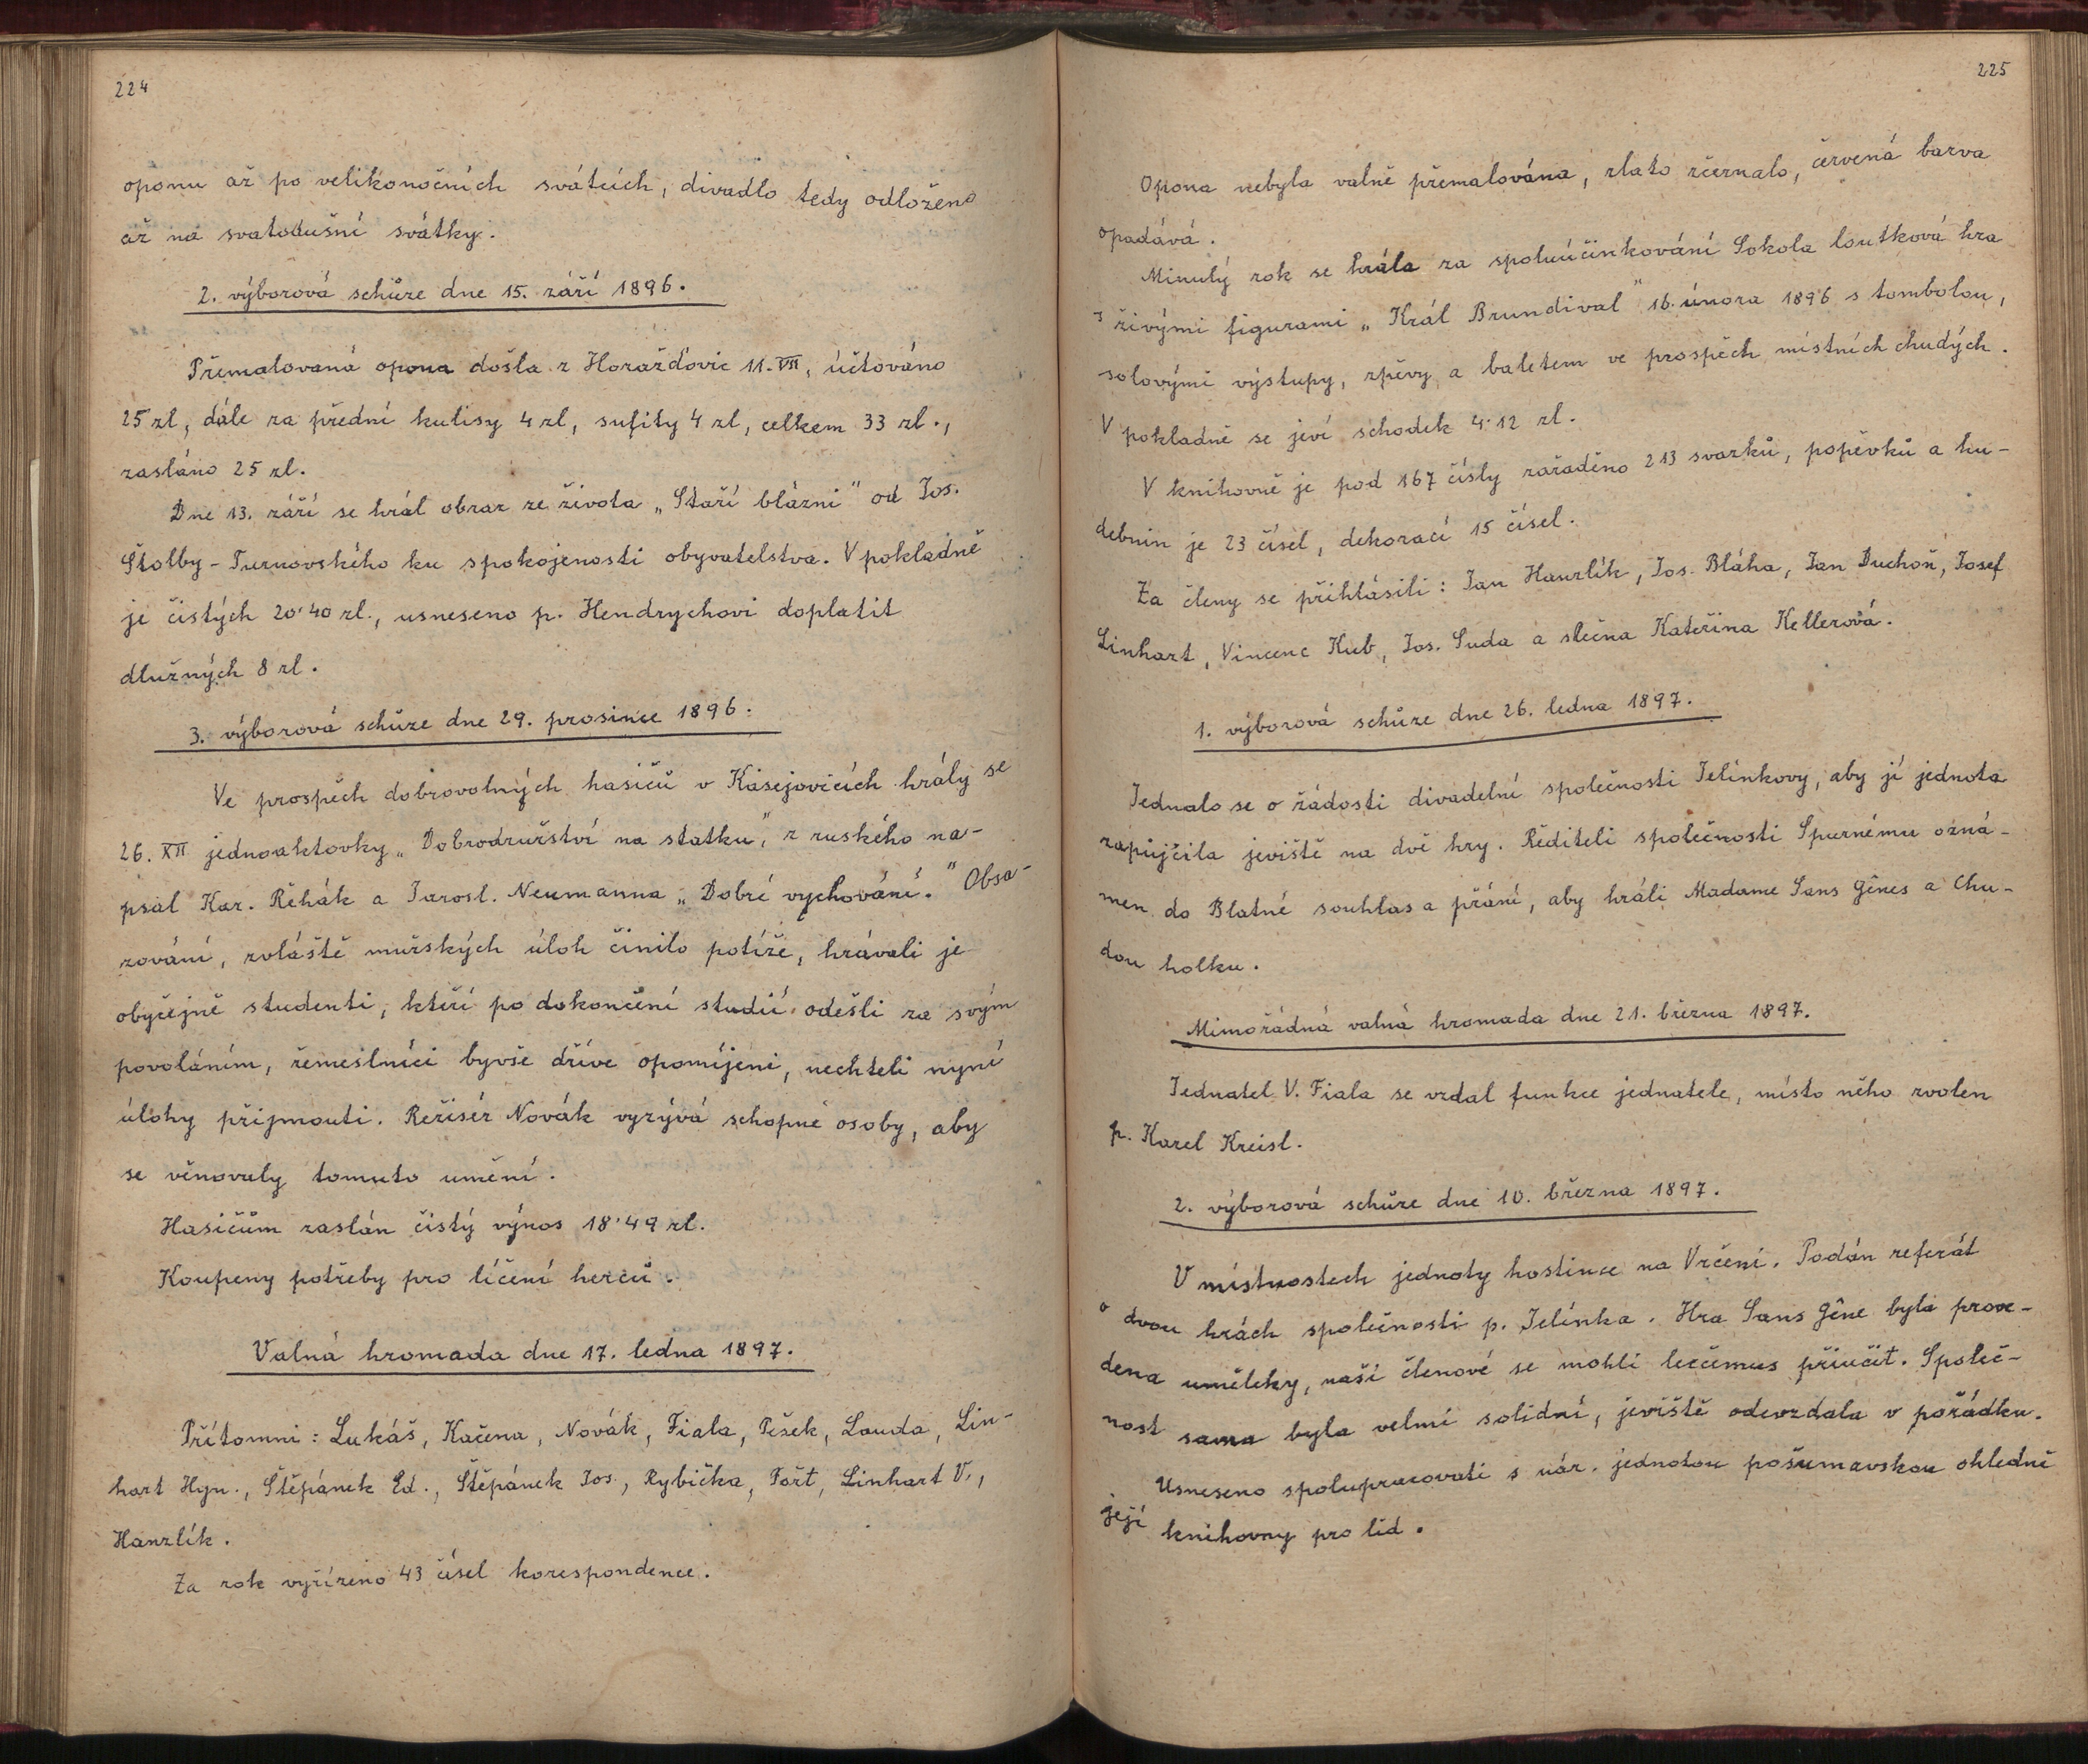 224
oponu až po velikonočních svátcích, divadlo tedy odloženo
až na svatodušní svátky.
2. výborová schůze dne 15. září 1896.
Přemalovaná opona došla z Horažďovic 11. VII, účtováno
25 zl, dále za přední kulisy 4 zl, sufity 4 zl, celkem 33 zl.,
zasláno 25 zl.
Dne 13. září se hrál obraz ze života „Staří blázni" od Jos.
Štolby - Turnovského ku spokojenosti obyvatelstva. V pokladně
je čistých 20'40 zl., usneseno p. Hendrychovi doplatit
dlužných 8 zl.
3. výborová schůze dne 29. prosince 1896.
Ve prospěch dobrovolných hasičů v Kasejovicích hrály se
26. XII jednoaktovky „Dobrodružství na statku", z ruského na-
psal Kar. Řehák a Jarosl. Neumanna „Dobré vychování." Obsa-
zování, zvláště mužských úloh činilo potíže, hrávali je
obyčejně studenti, kteří po dokončení studií odešli za svým
povoláním, řemeslníci byvše dříve opomíjeni, nechteli nyní
úlohy přijmouti. Režisér Novák vyzývá schopné osoby, aby
se věnovaly tomuto umění.
Hasičům zaslán čistý výnos 18'49 zl.
Koupeny potřeby pro líčení herců.
Valná hromada dne 17. ledna 1897.
Přítomni: Lukáš, Kačena, Novák, Fiala, Pešek, Lauda, Lin-
hart Hyn., Štěpánek Ed., Štěpánek Jos., Rybička, Fořt, Linhart V.,
Hanzlík.
Za rok vyřízeno 43 čísel korespondence.
225
Opona nebyla valně přemalována, zlato zčernalo, červená barva
opadává.
Minulý rok se hrála za spoluúčinkování Sokola loutková hra
s živými figurami „Král Brundival" 16. února 1896 s tombolou,
solovými výstupy, zpěvy a baletem ve prospěch místních chudých.
V pokladně se jeví schodek 4'12 zl.
V knihovně je pod 167 čísly zařaděno 213 svazků, popěvků a hu-
debnin je 23 čísel, dekorací 15 čísel.
Za členy se přihlásili: Jan Hanzlík, Jos. Bláha, Jan Duchoň, Josef
Linhart, Vincenc Kub, Jos. Suda a slečna Kateřina Kellerová.
1. výborová schůze dne 26. ledna 1897.
Jednalo se o žádosti divadelní společnosti Jelínkovy, aby jí jednota
zapůjčila jeviště na dvě hry. Řediteli společnosti Spurnému ozná-
men do Blatné souhlas a přání, aby hráli Madame Sans Gênes a Chu-
dou holku.
Mimořádná valná hromada dne 21. března 1897.
Jednatel V. Fiala se vzdal funkce jednatele, místo něho zvolen
p. Karel Kreisl.
2. výborová schůze dne 10. března 1897.
V místnostech jednoty hostince na Vrčení. Podán referát
o dvou hrách společnosti p. Jelínka. Hra Sans Gêne byla prove-
dena umělecky, naši členové se mohli lecčemus přiučit. Společ-
nost sama byla velmi solidní, jeviště odevzdala v pořádku.
Usneseno spolupracovati s nár. jednotou pošumavskou ohledně
její knihovny pro lid.